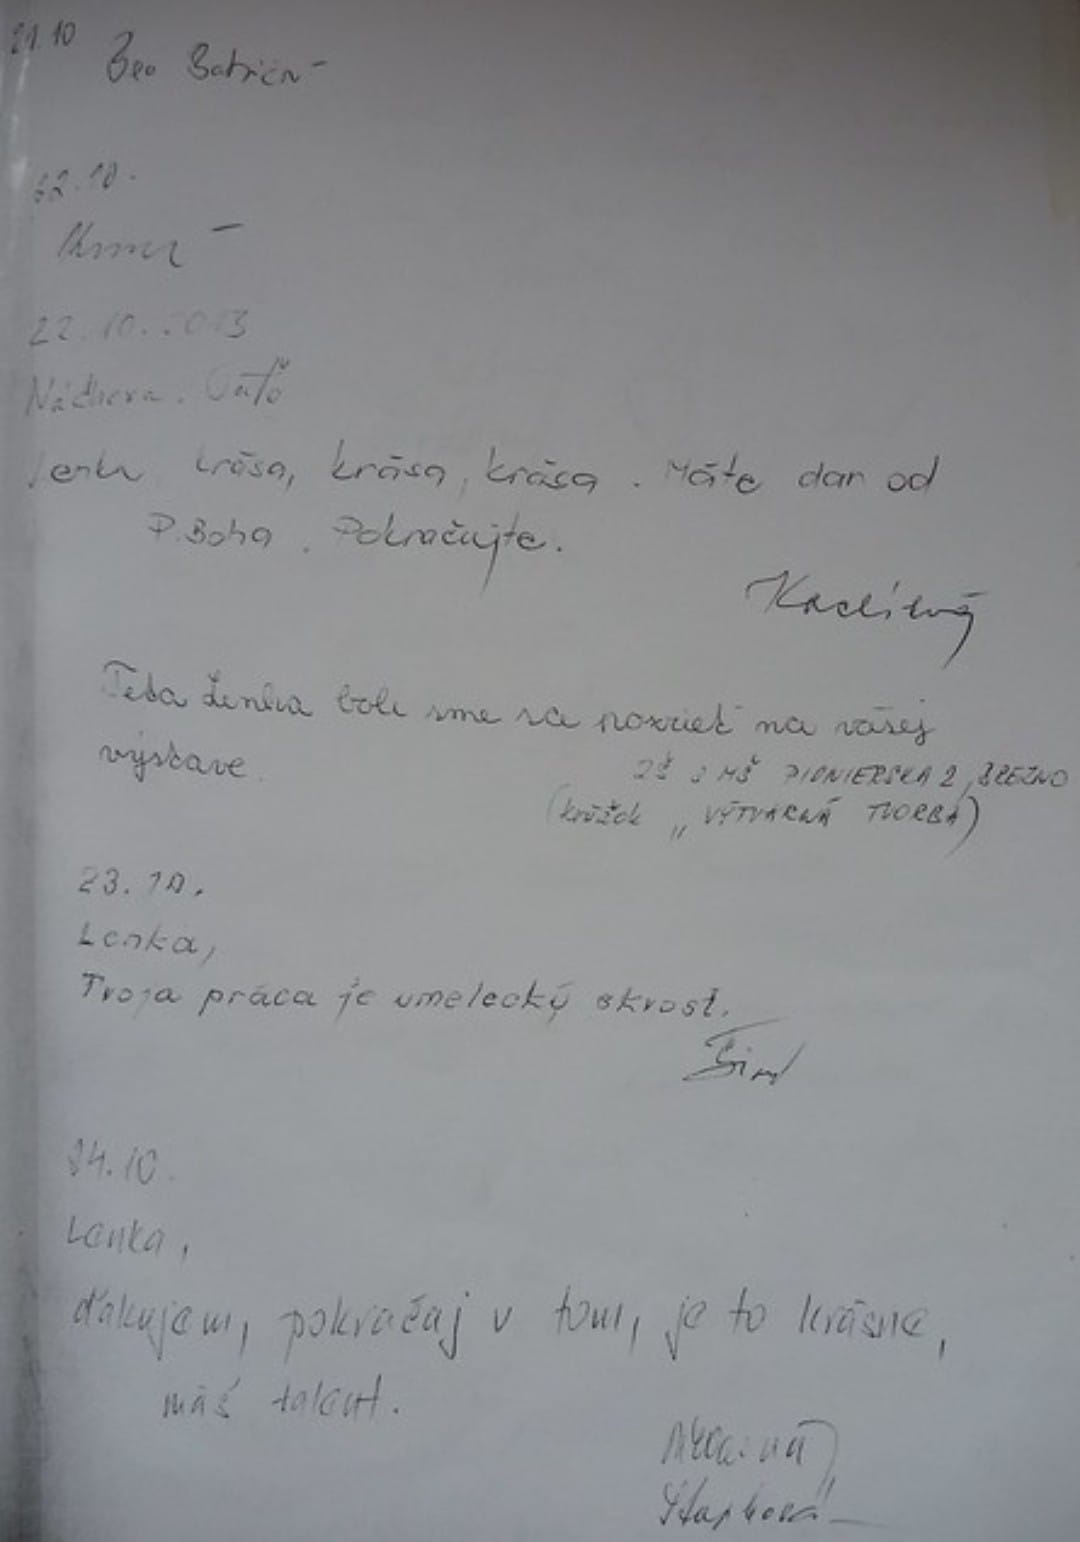 21.10
22.10.
22.10.2013
Nádhera.
Lenka krása, krása, krása. Máte dar od
P. Boha. Pokračujte.
Teta Lenka boli sme sa pozrieť na vašej
výstave.
ZŠ s MŠ PIONIERSKA 2, BREZNO
(krúžok „VÝTVARNÁ TVORBA)
23.10.
Lenka,
Tvoja práca je umelecký skvost.
24.10.
Lenka,
ďakujem, pokračaj v tom, je to krásne,
máš talent.